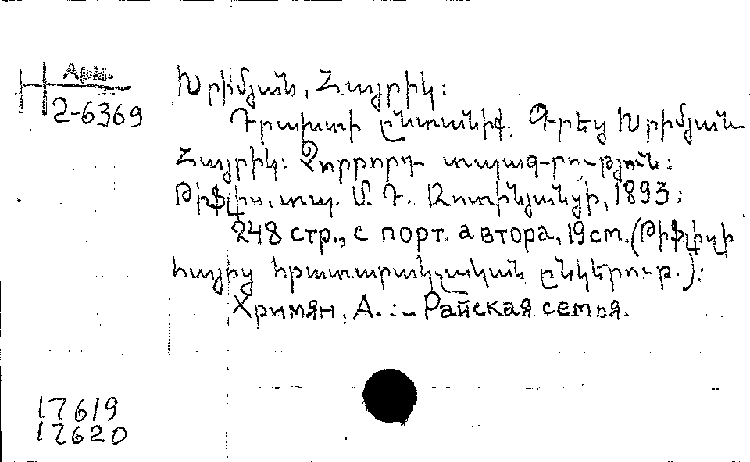 Арм.
2-6369
Խրիմյան, Հայրիկ:
Դրախտի ընտանիք. Գրեց Խրիմյան
Հայրիկ: Չորրորդ տպագրություն:
Թիֆլիս, տպ. Մ. Դ. Ռոտինյանցի, 1893:
248 стр., с порт. автора, 19 см. (Թիֆլիսի
հայոց հրատարակչական ընկերութ.):
Хримян, А. :– Райская семья.
17619
17620